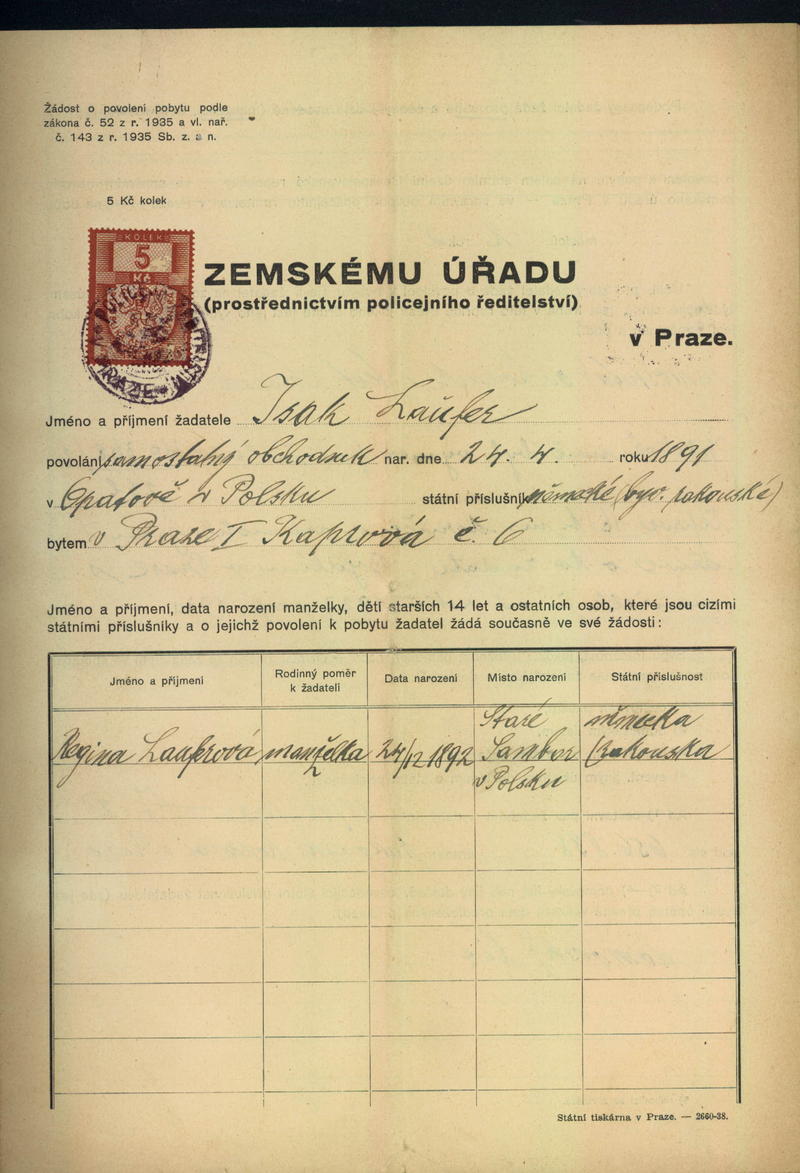 Žádost o povolení pobytu podle
zákona č. 52 z r. 1935 a vl. nař.
č. 143 z r. 1935 Sb. z. a n.
5 Kč kolek
KOLEK
5
Kč
ZEMSKÉMU ÚŘADU
(prostřednictvím policejního ředitelství)
v Praze.
Jméno a příjmení žadatele Isak Laufer
povolání samostatný obchodník nar. dne 24. 4. roku 1891
v Opatově v Polsku státní příslušník německé (byv. rakouské)
bytem v Praze I Kaprová č. 6
Jméno a příjmení, data narození manželky, dětí starších 14 let a ostatních osob, které jsou cizími
státními příslušníky a o jejichž povolení k pobytu žadatel žádá současně ve své žádosti:
Jméno a příjmení Rodinný poměr k žadateli Data narození Místo narození Státní příslušnost
Regina Lauferová manželka 24/12 1892 Staré Sambor v Polsku německa (rakouska
Státní tiskárna v Praze. — 2660-38.